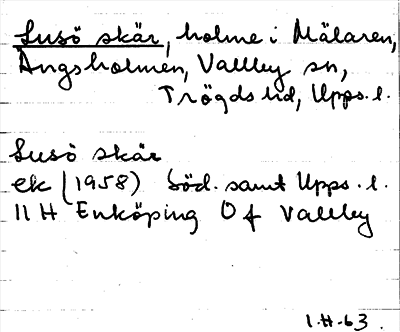 Lusö skär, holme i Mälaren,
Ängsholmen, Vallby sn,
Trögds hd, Upps. l.
Lusö skär
ek (1958) Söd. samt Upps. l.
11 H Enköping 0 f Vallby
1.H.63.